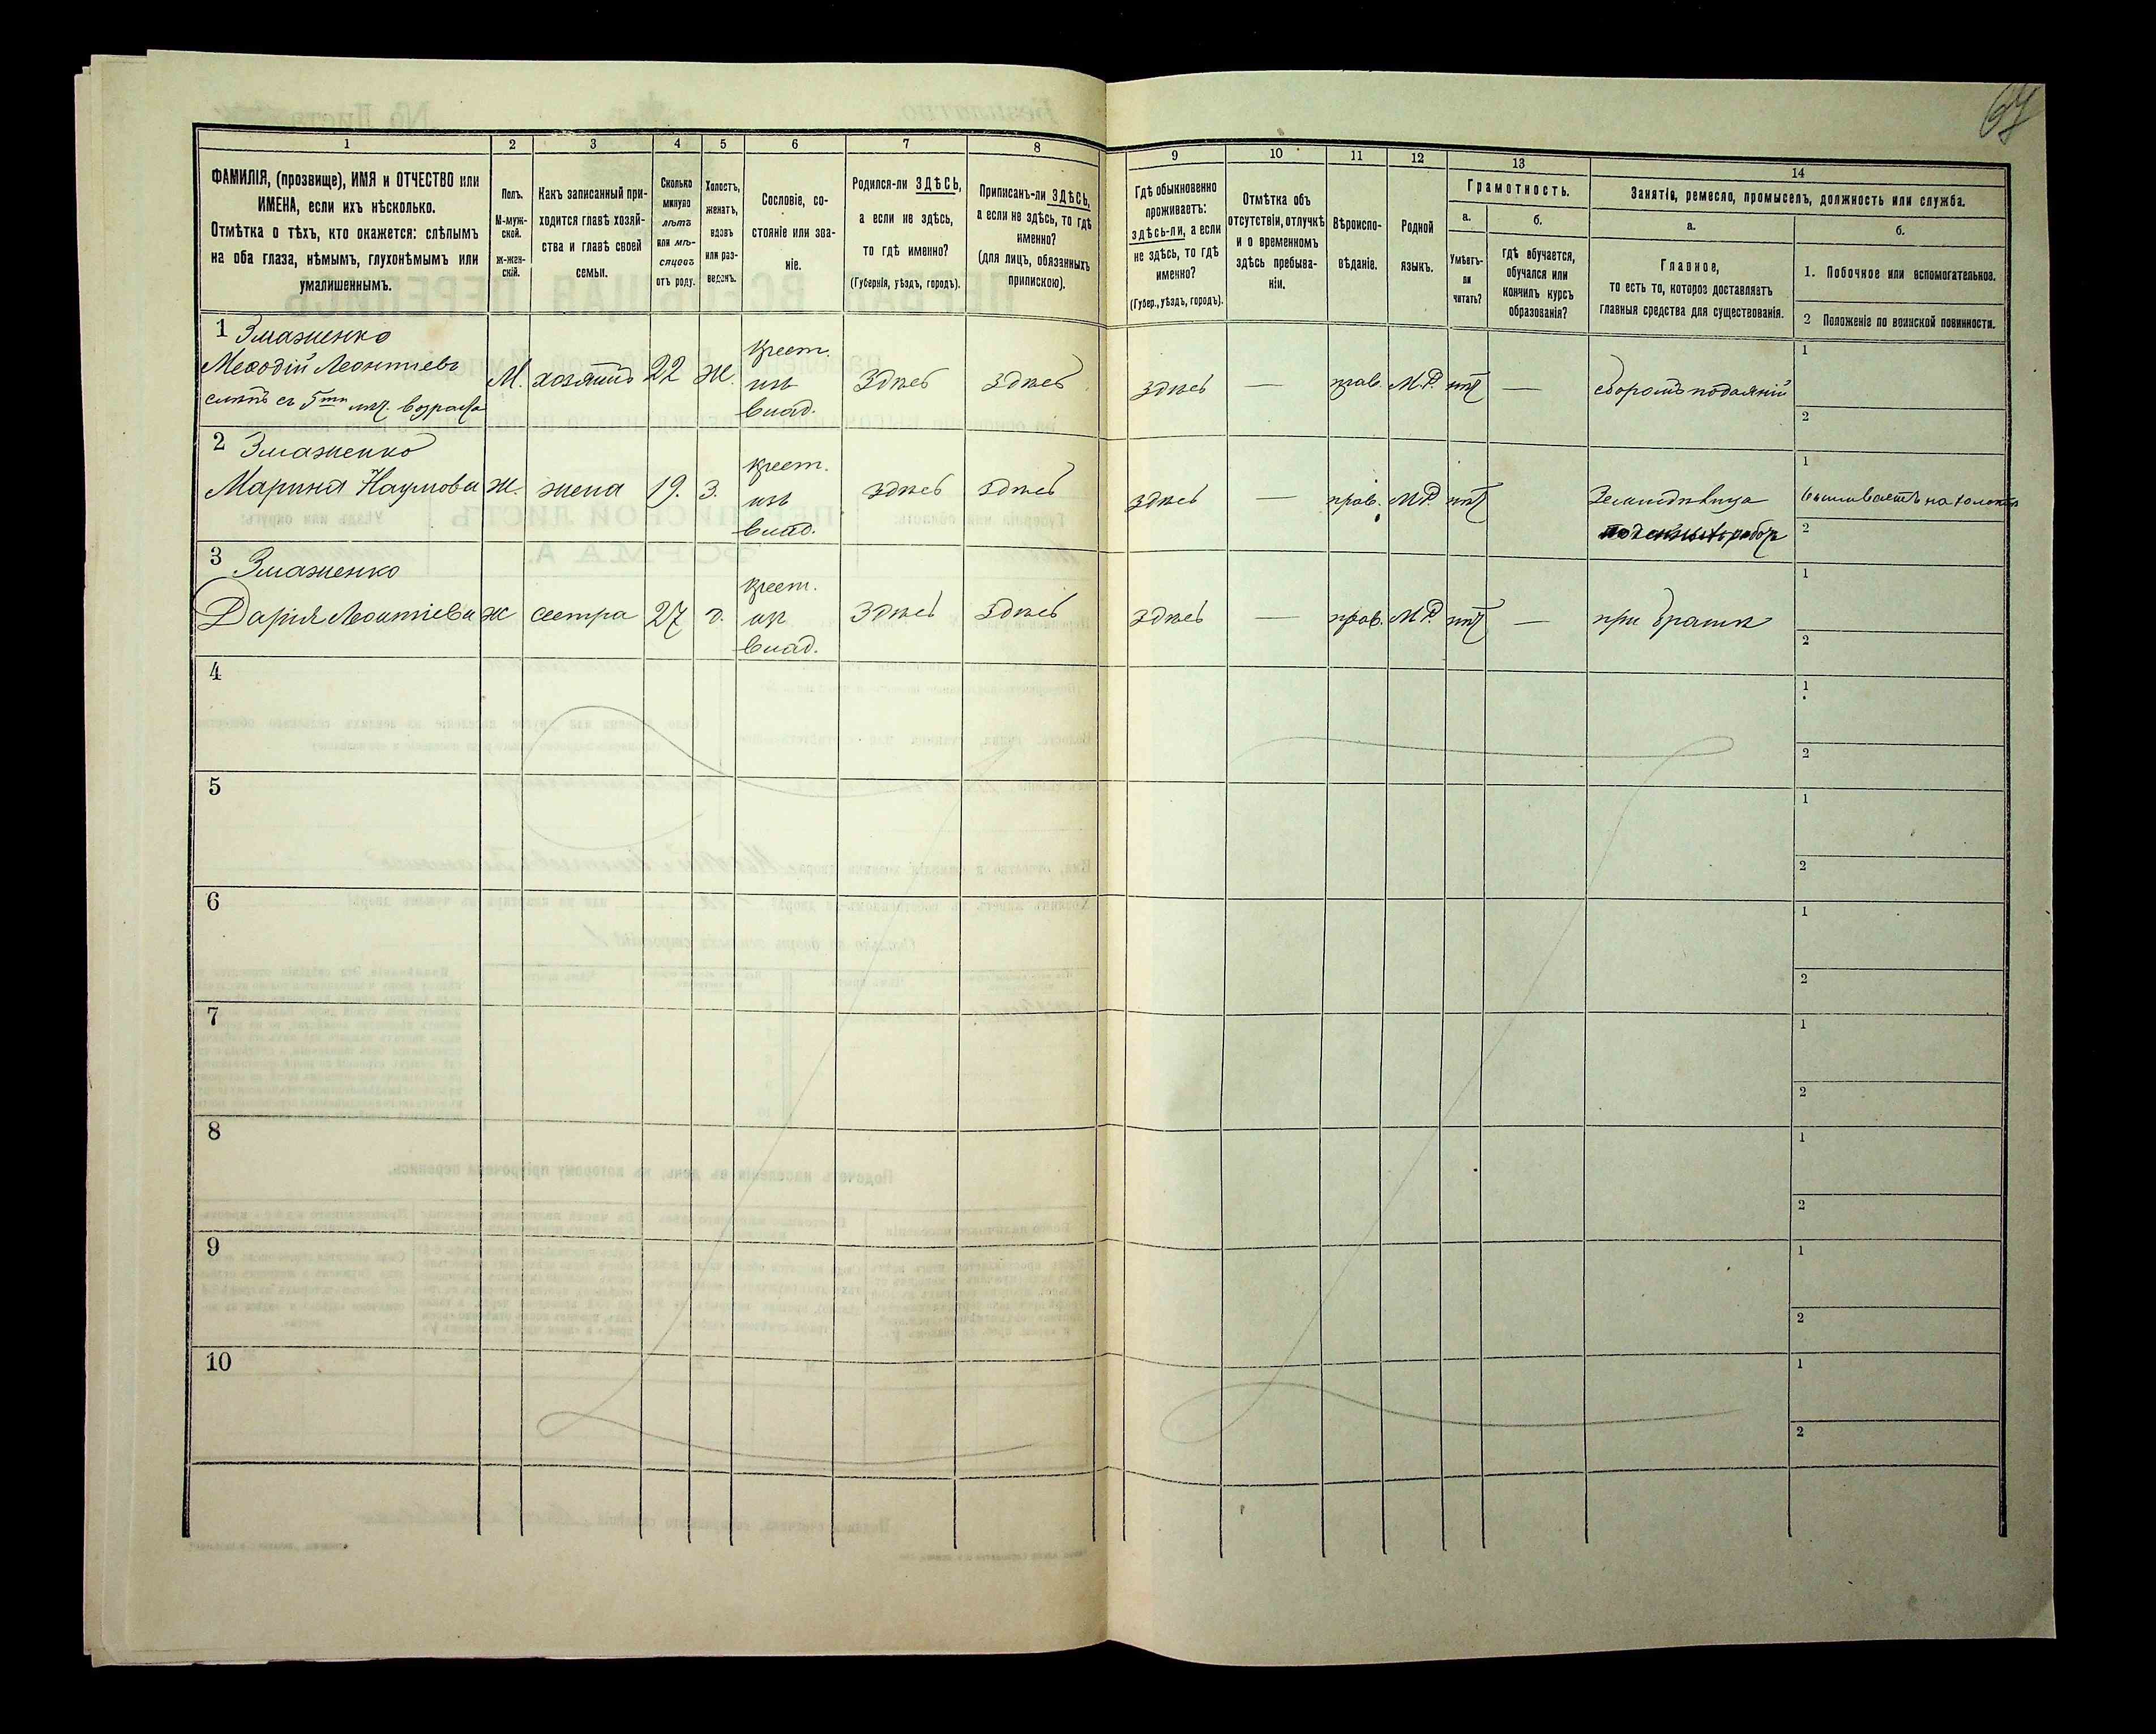 67
1 2 3 4 5 6 7 8 9 10 11 12 13 14
ФАМИЛІЯ, (прозвище), ИМЯ и ОТЧЕСТВО или
ИМЕНА, если ихъ нѣсколько.
Отмѣтка о тѣхъ, кто окажется: слѣпымъ
на оба глаза, нѣмымъ, глухонѣмымъ или
умалишеннымъ.
Полъ.
М-муж-
ской.
Ж-жен-
скій.
Какъ записанный при-
ходится главѣ хозяй-
ства и главѣ своей
семьи.
Сколько
минуло
лѣтъ
или мѣ-
сяцевъ
отъ роду.
Холостъ,
женатъ,
вдовъ
или раз-
веденъ.
Сословіе, со-
стояніе или зва-
ніе.
Родился-ли ЗДѢСЬ,
а если не здѣсь,
то гдѣ именно?
(Губернія, уѣздъ, городъ).
Приписанъ-ли ЗДѢСЬ,
а если не здѣсь, то гдѣ
именно?
(для лицъ, обязанныхъ
припискою).
Гдѣ обыкновенно
проживаетъ:
здѣсь-ли, а если
не здѣсь, то гдѣ
именно?
(Губер., уѣздъ, городъ).
Отмѣтка объ
отсутствіи, отлучкѣ
и о временномъ
здѣсь пребыва-
ніи.
Вѣроиспо-
вѣданіе.
Родной
языкъ.
Грамотность.
а.
Умѣетъ-
ли
читать?
б.
гдѣ обучается,
обучался или
кончилъ курсъ
образованія?
Занятія, ремесло, промыселъ, должность или служба.
а.
Главное,
то есть то, которое доставляетъ
главныя средства для существованія.
б.
1. Побочное или вспомогательное.
2 Положеніе по воинской повинности.
1 Змаженко
Меѳодій Леонтіевъ
слѣпъ съ 5ти лѣт. возраста
М. хозяинъ 22 Ж.
крест.
изъ
влад.
здѣсь здѣсь здѣсь — прав. М.Р. нѣт — сборомъ подаяній
1
2
2 Змаженко
Марина Наумова Ж. жена 19. З.
крест.
изъ
влад.
здѣсь здѣсь здѣсь — прав. М.Р. нѣт Земледѣлица
1
2
3 Змаженко
Дарія Леонтіева Ж сестра 27 д.
крест.
из
влад.
здѣсь здѣсь здѣсь — прав. М.Р. нѣт — при братѣ
1
2
4
1
2
5
1
2
6
1
2
7
1
2
8
1
2
9
1
2
10
1
2